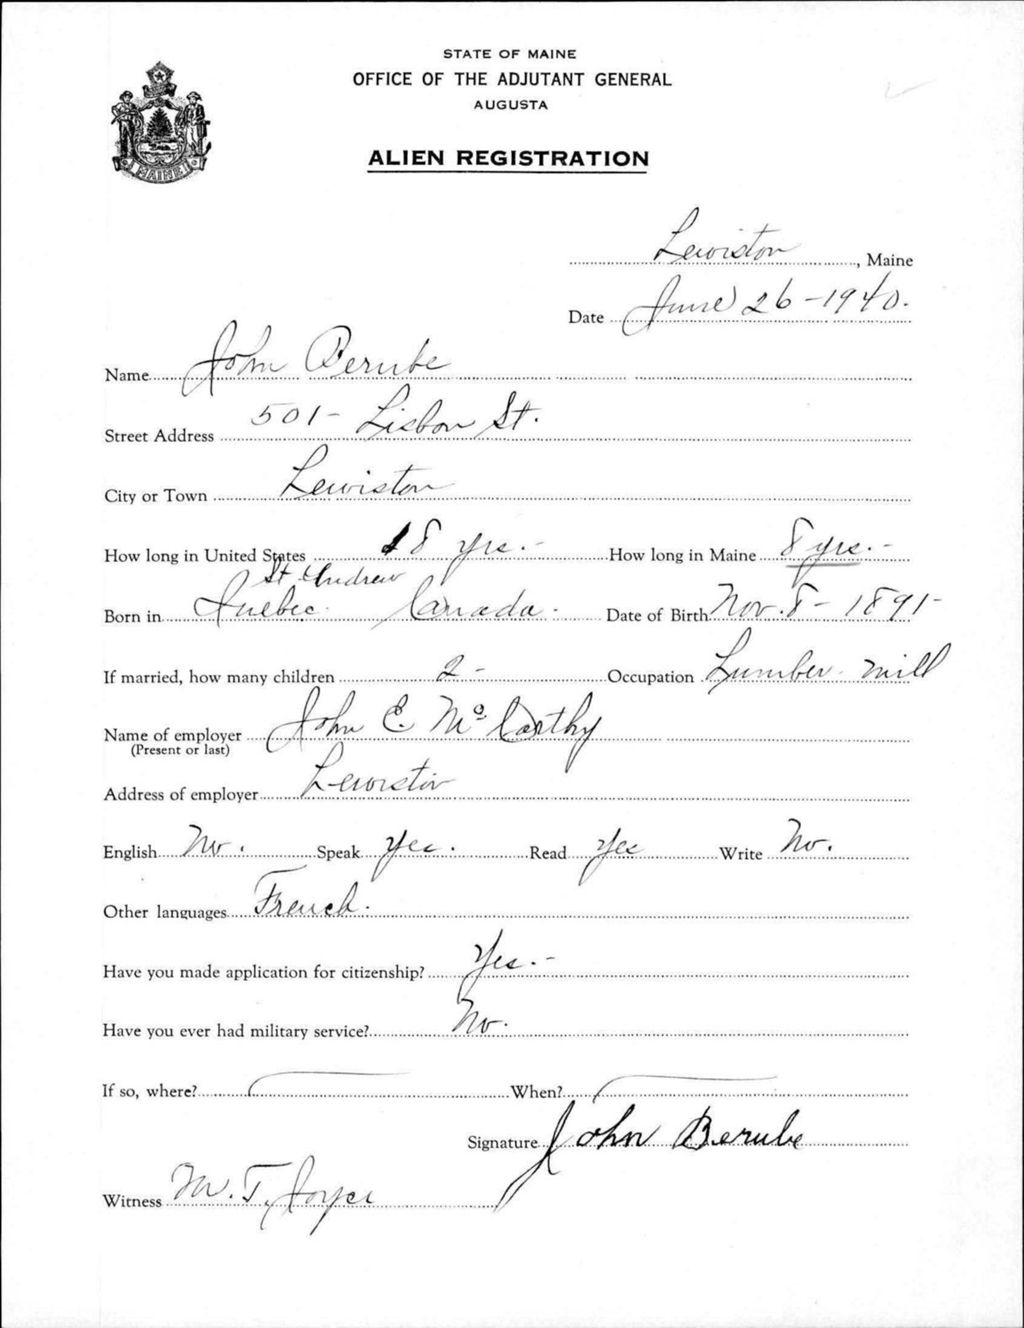 STATE OF MAINE
OFFICE OF THE ADJUTANT GENERAL
AUGUSTA
ALIEN REGISTRATION
MAINE
Lewiston, Maine
Date June 26-1940.
Name John Berube
Street Address 501- Lisbon St.
City or Town Lewiston
How long in United States 18 yrs.- How long in Maine 8 yrs.-
St Andrew
Born in Quebec. Canada. Date of Birth Nov. 8- 1891-
If married, how many children 2- Occupation Lumber mill
Name of employer John E. Mc Carthy
(Present or last)
Address of employer Lewiston
English No. Speak yes. Read yes Write No.
Other languages French.
Have you made application for citizenship? Yes.-
Have you ever had military service? No.
If so, where? When?
Signature John Berube
Witness M. T. Joyce